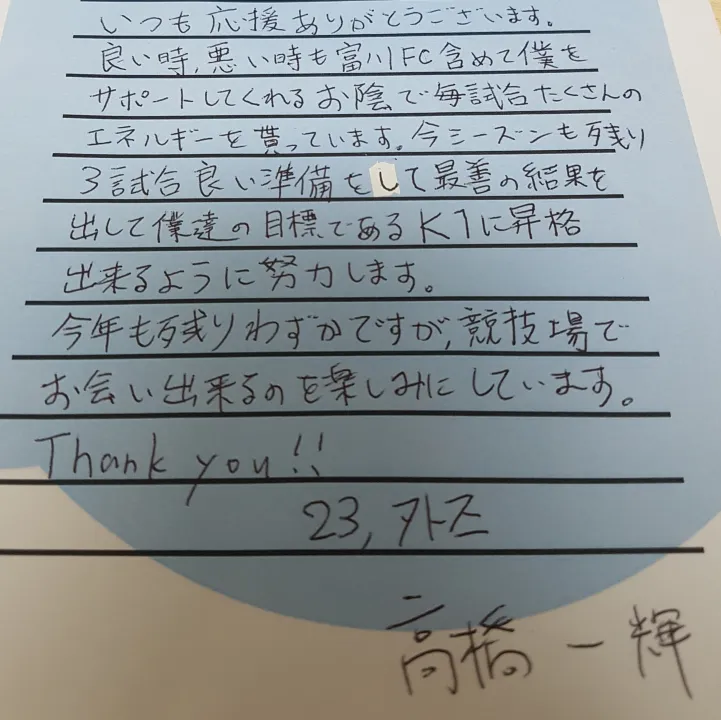 いつも応援ありがとうございます。
良い時、悪い時も富川FC含めて僕を
サポートしてくれるお陰で毎試合たくさんの
エネルギーを貰っています。今シーズンも残り
3試合良い準備をして最善の結果を
出して僕達の目標であるK1に昇格
出来るように努力します。
今年も残りわずかですが、競技場で
お会い出来るのを楽しみにしています。
Thank you!!
23, カズ
高橋一輝